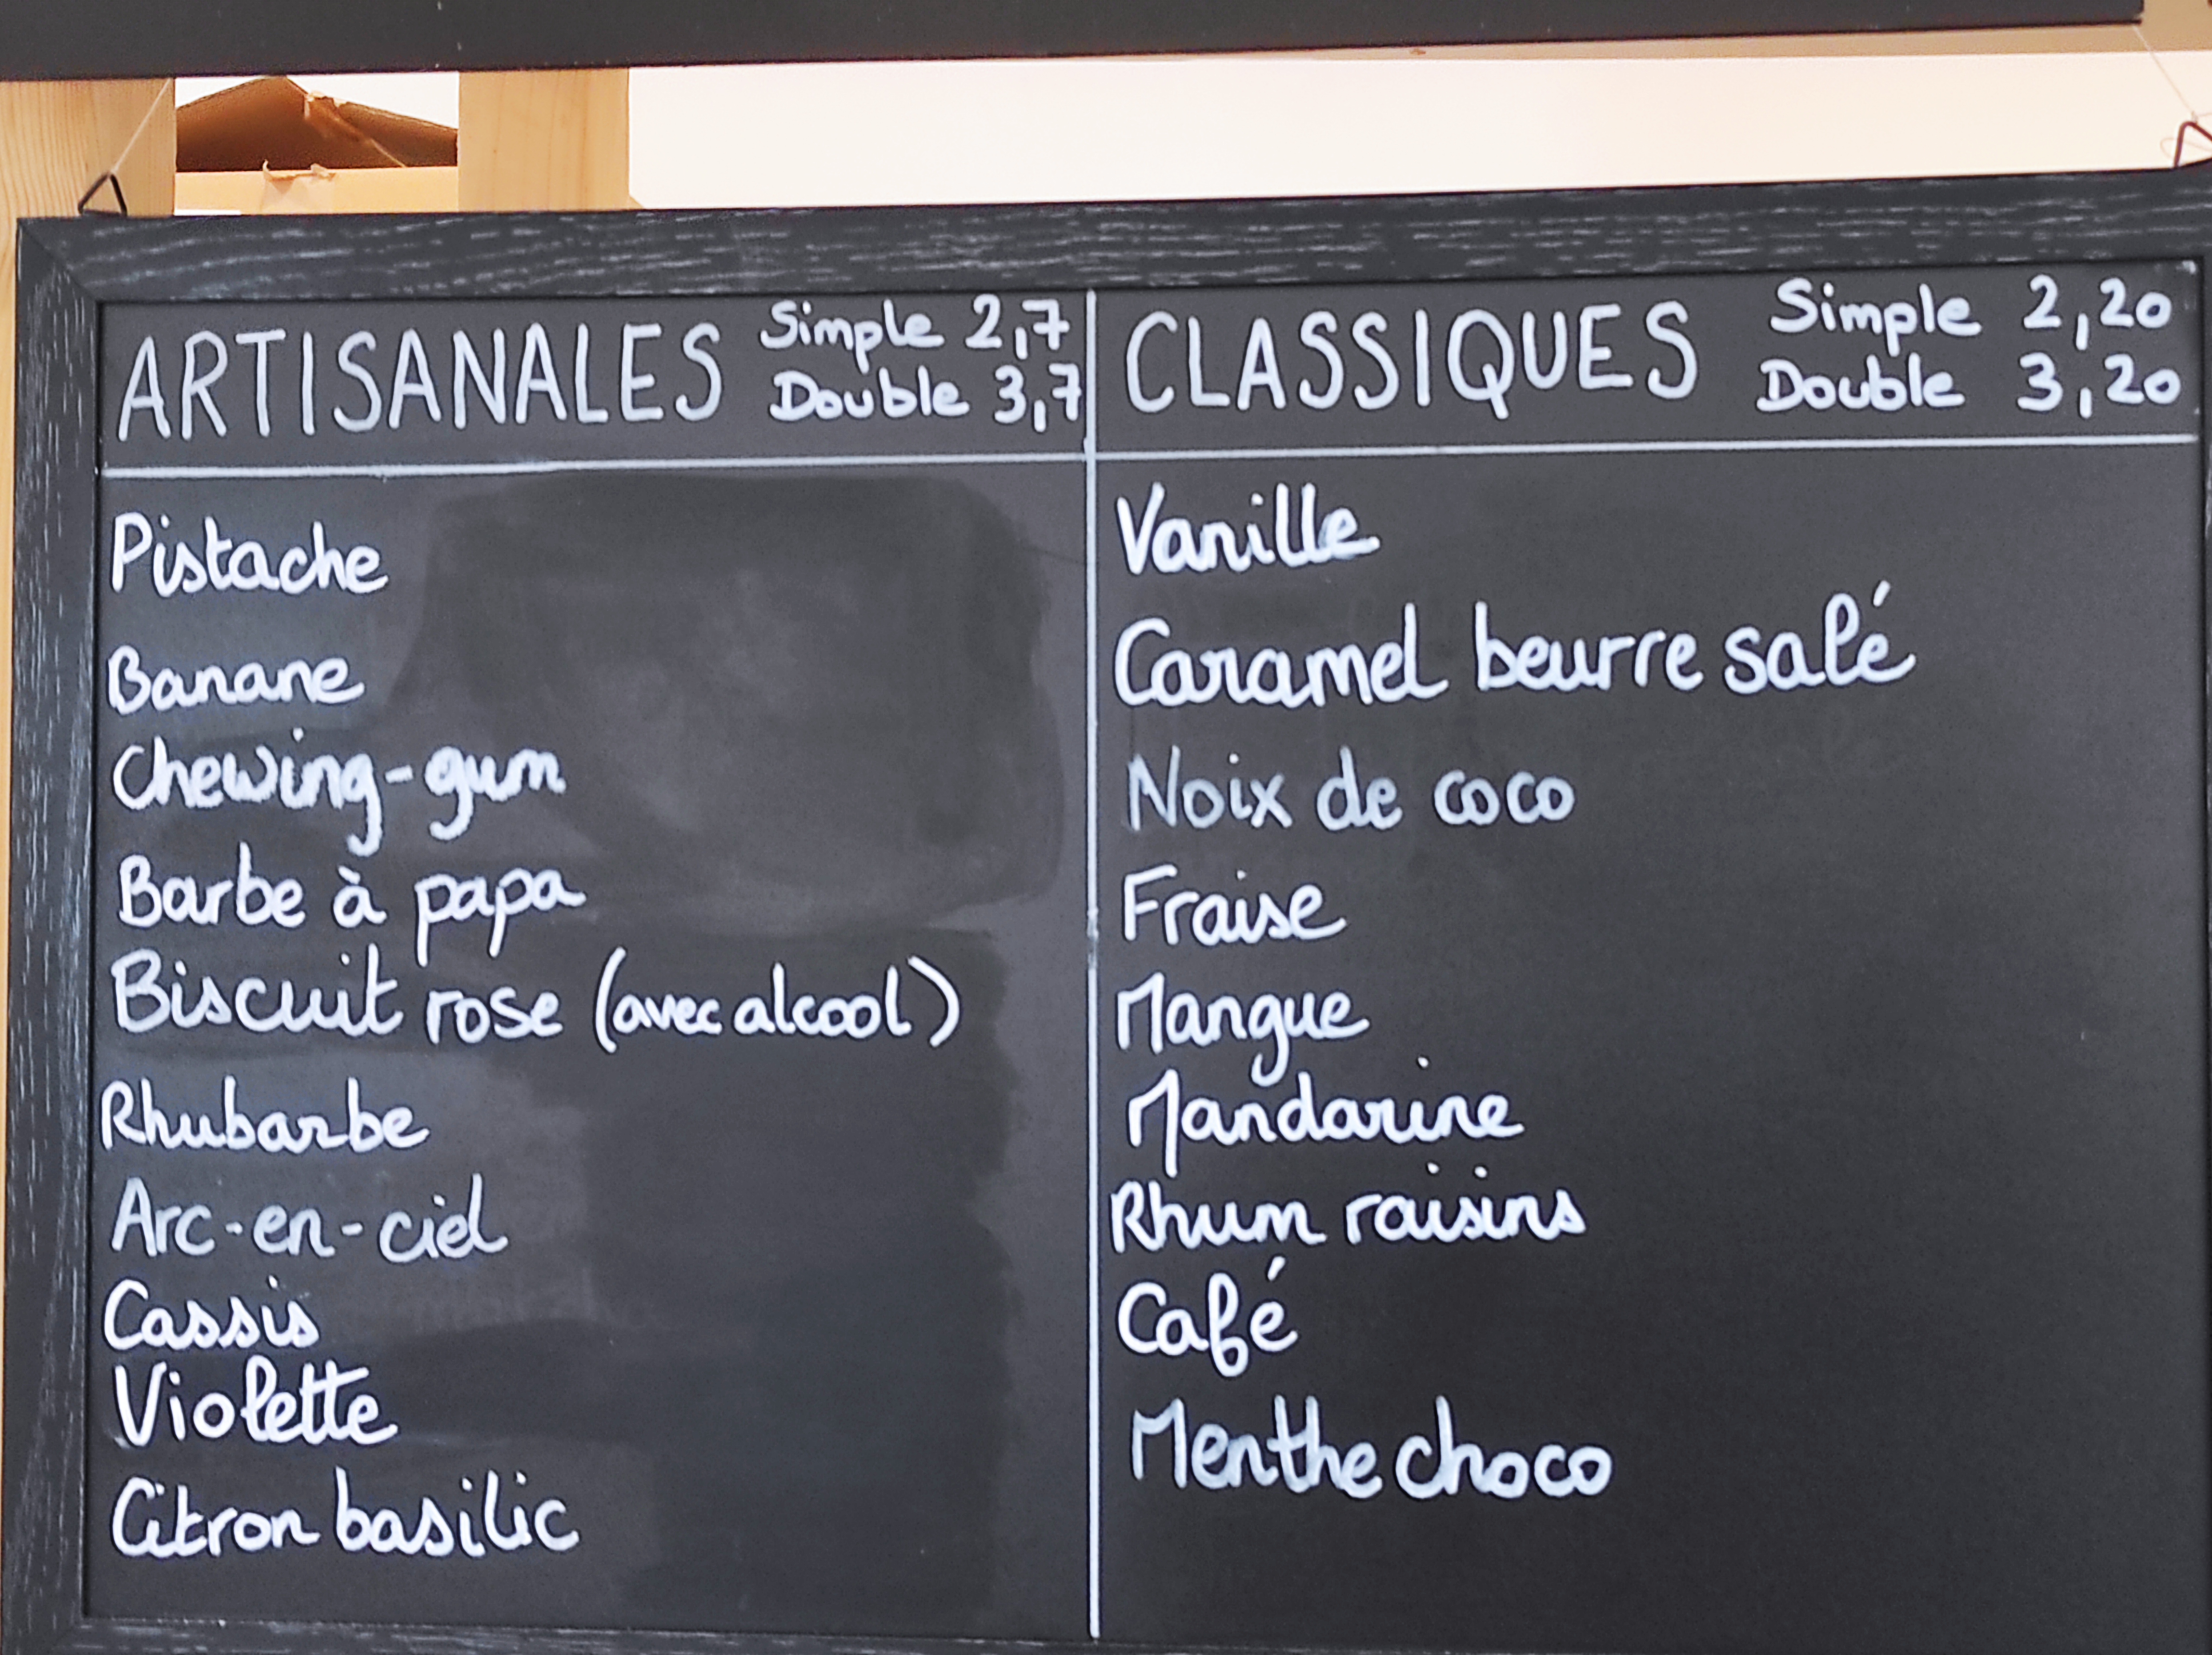 ARTISANALES
Simple 2,7
Double 3,7
Pistache
Banane
Chewing-gum
Barbe à papa
Biscuit rose (avec alcool)
Rhubarbe
Arc-en-ciel
Cassis
Violette
Citron basilic
CLASSIQUES
Simple 2,20
Double 3,20
Vanille
Caramel beurre salé
Noix de coco
Fraise
Mangue
Mandarine
Rhum raisins
Café
Menthe choco